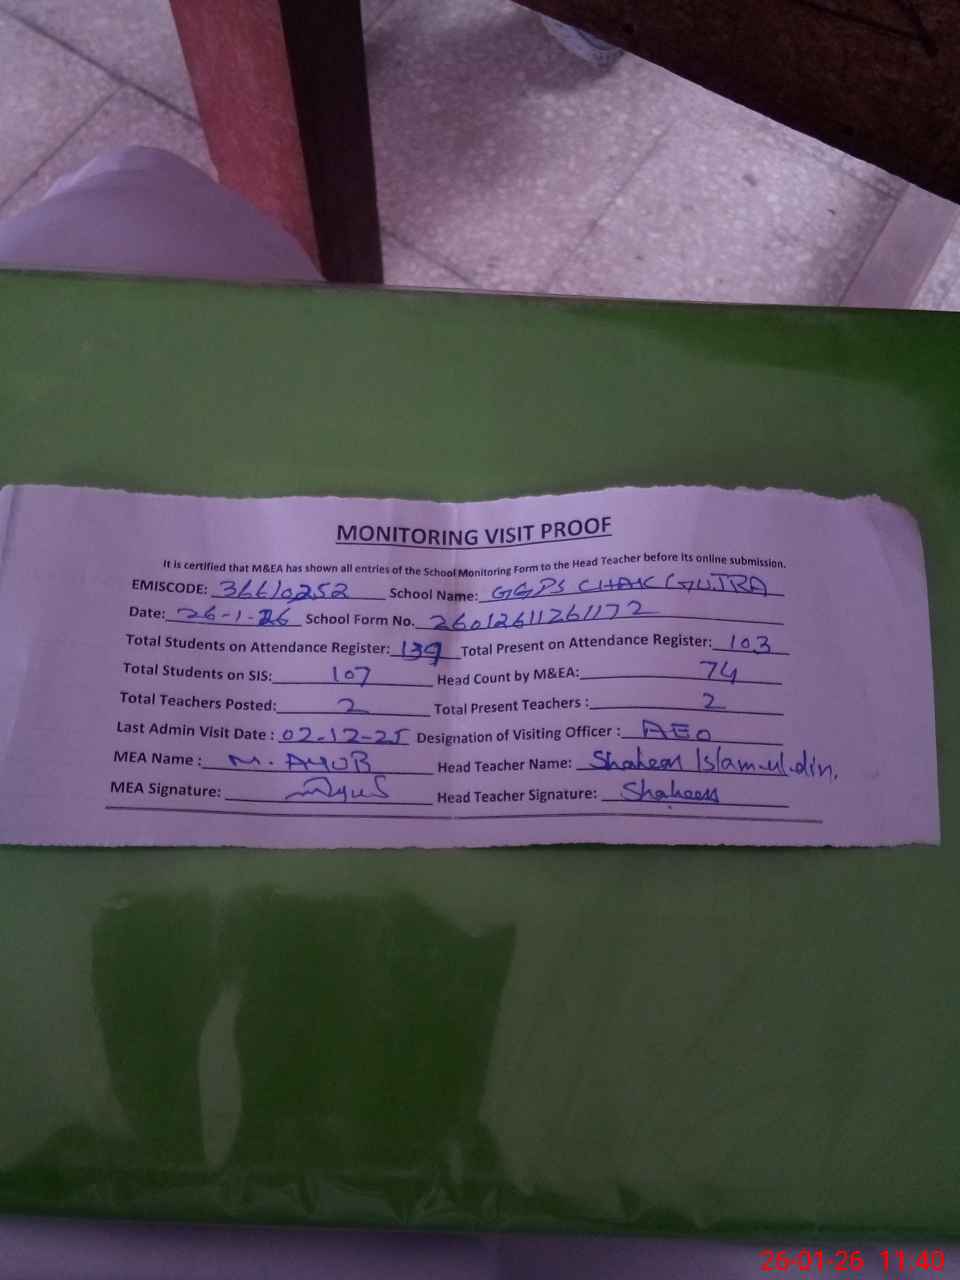 MONITORING VISIT PROOF
It is certified that M&EA has shown all entries of the School Monitoring Form to the Head Teacher before its online submission.
EMISCODE: 36610252 School Name: GGPS CHAK GUJRA
Date: 26-1-26 School Form No. 26012611261172
Total Students on Attendance Register: 139 Total Present on Attendance Register: 103
Total Students on SIS: 107 Head Count by M&EA: 74
Total Teachers Posted: 2 Total Present Teachers : 2
Last Admin Visit Date : 02-12-25 Designation of Visiting Officer : AEO
MEA Name : M. AYUB Head Teacher Name: Shaheen Islam-ul-din.
MEA Signature: Head Teacher Signature: Shaheen
26-01-26 11:40